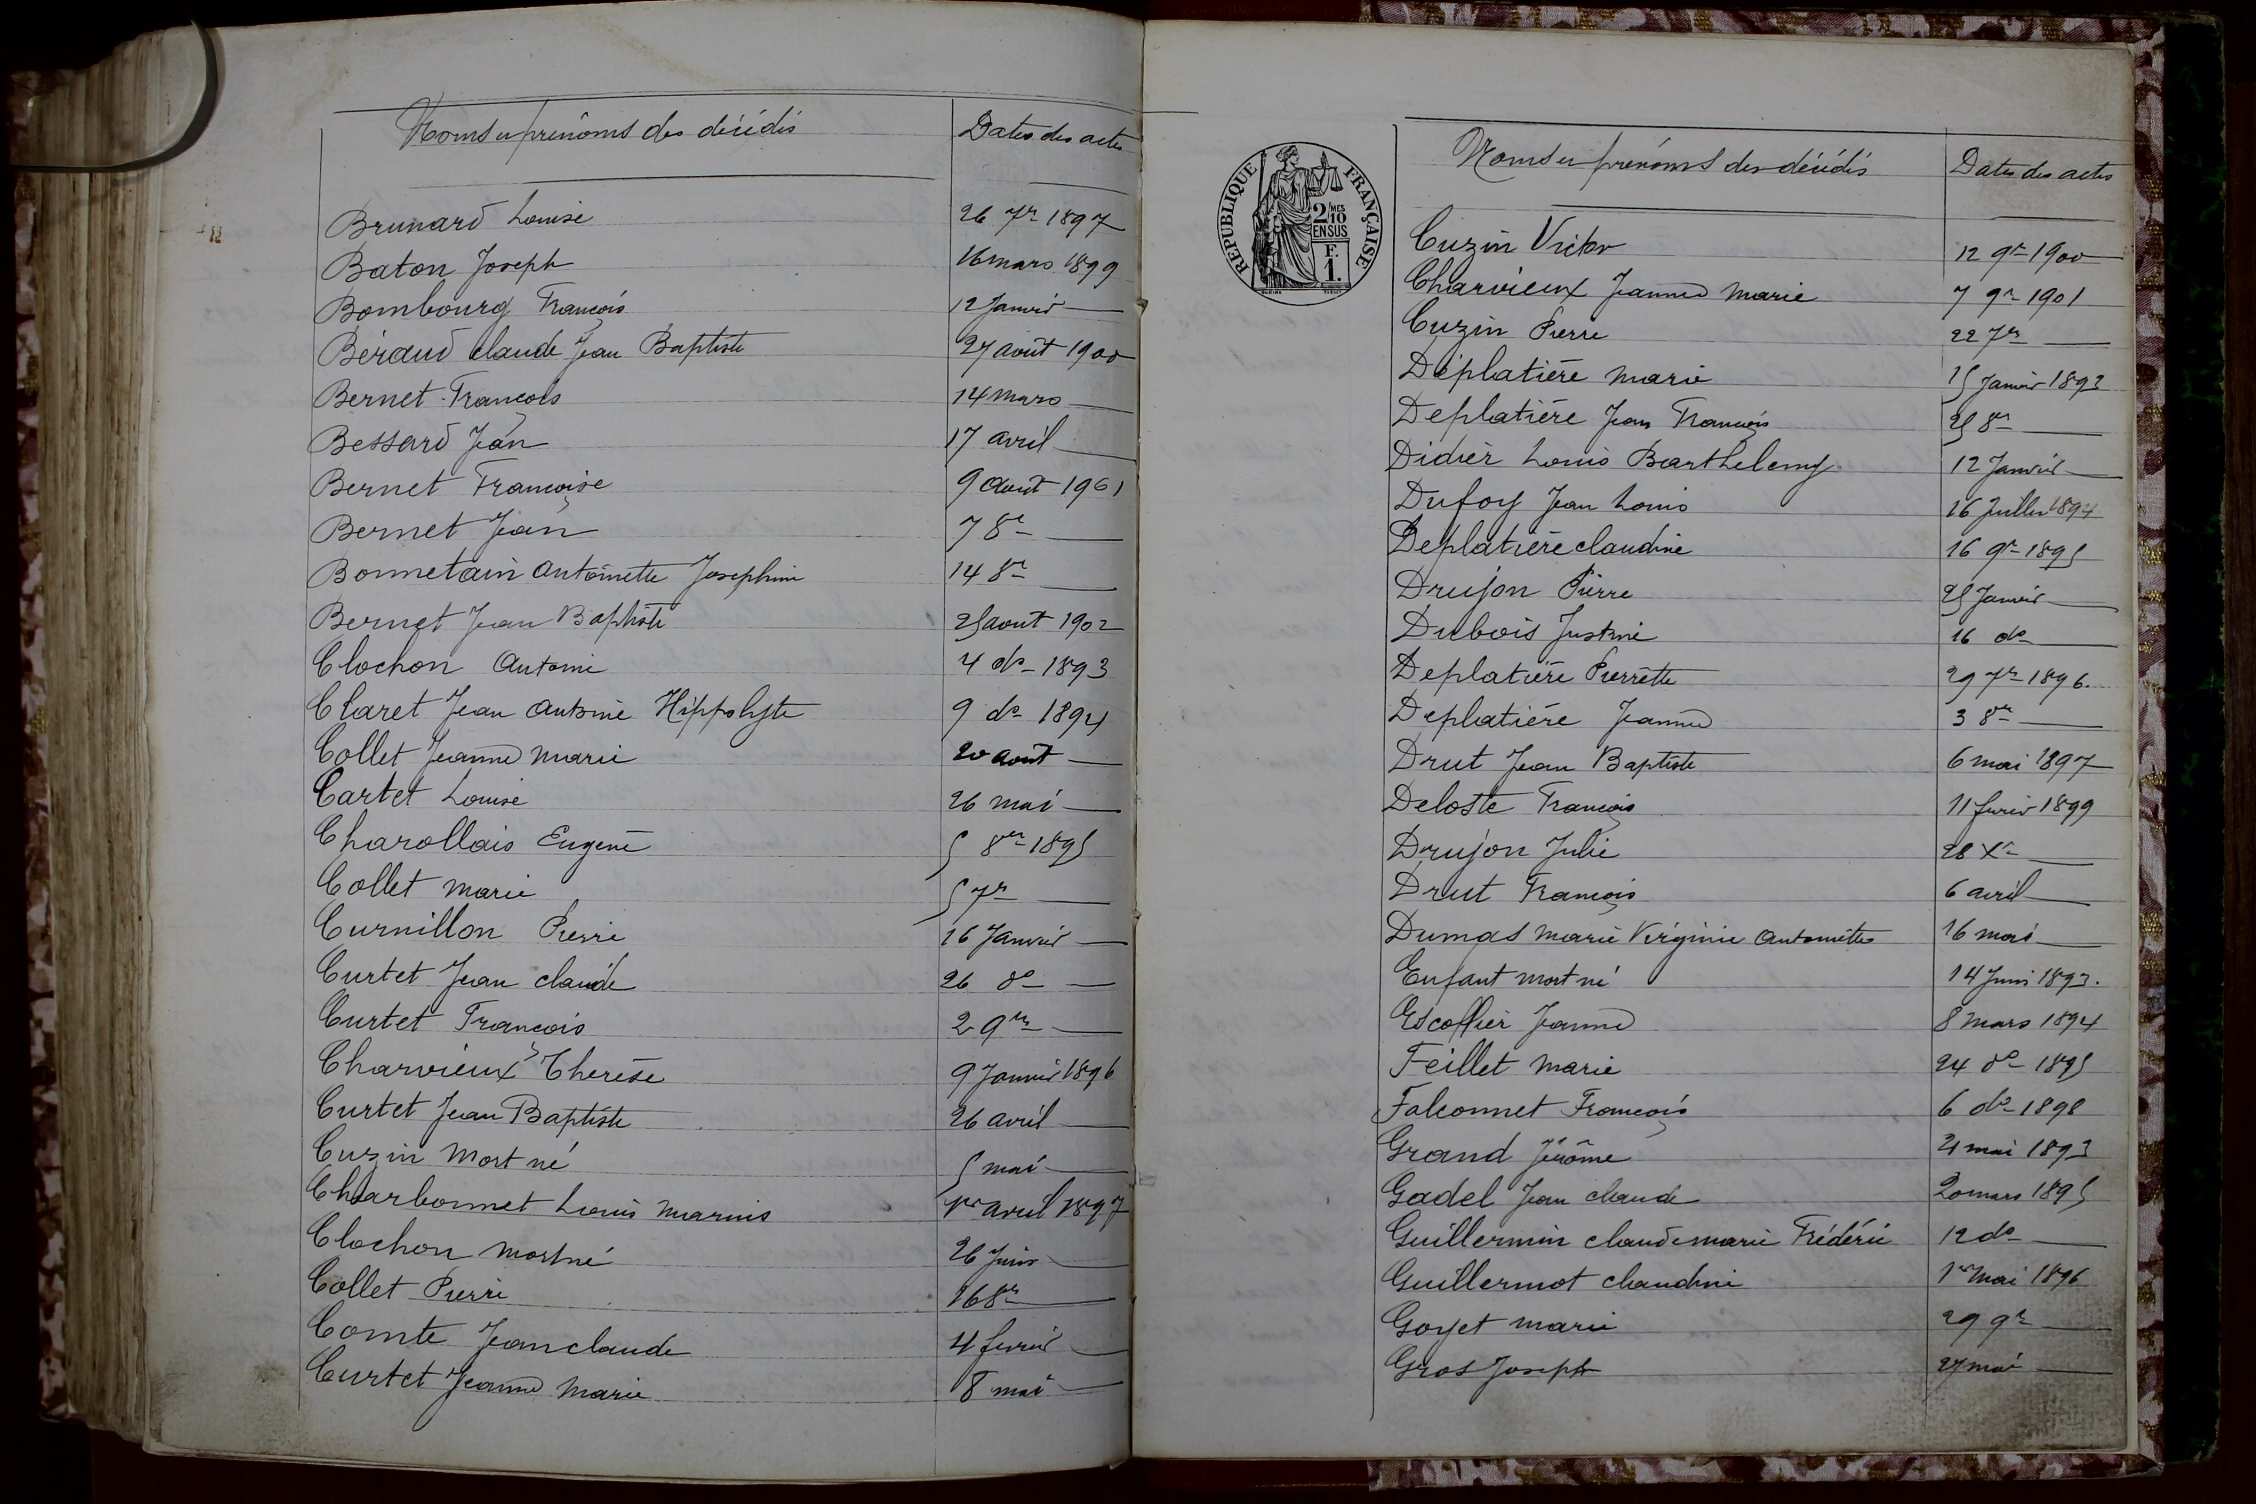 Noms et prénoms des décédés Dates des actes
Brunard Louise 26 7re 1897
Baton Joseph 16 mars 1899
Bombourg François 12 Janvier —
Béraud Claude Jean Baptiste 27 août 1900
Bernet François 14 mars —
Bessard Jean 17 avril —
Bernet Françoise 9 août 1901
Bernet Jean 7 8re —
Bonnetain Antoinette Josephine 14 8re —
Bernet Jean Baptiste 25 août 1902
Clochon Antoine 4 do 1893
Claret Jean Antoine Hippolyte 9 do 1894
Collet Jeanne Marie 20 août —
Cartet Louise 26 mai —
Charollais Eugène 5 8re 1895
Collet Marie 5 7re —
Curnillon Pierre 16 Janvier —
Curtet Jean Claude 26 do —
Curtet François 2 9re —
Charvieux Therèse 9 Janvier 1896
Curtet Jean Baptiste 26 avril —
Cuzin Mort né 5 mai —
Charbonnet Louis Marius 1er avril 1897
Clochon Mort né 26 Juin —
Collet Pierre 16 8re —
Comte Jean Claude 4 fevrier —
Curtet Jeanne Marie 8 mai —
RÉPUBLIQUE FRANÇAISE
2/10 MES
EN SUS
F.
1.
Noms et prénoms des décédés Dates des actes
Cuzin Victor 12 9re 1900
Charvieux Jeanne Marie 7 9re 1901
Cuzin Pierre 22 7re —
Déplatière Marie 15 Janvier 1893
Deplatière Jean François 25 8re —
Didier Louis Barthelemy 12 Janvier —
Dufoy Jean Louis 16 Juillet 1894
Deplatière Claudine 16 9re 1895
Drujon Pierre 25 Janvier —
Dubois Justine 16 do —
Deplatière Pierrette 29 7re 1896.
Deplatière Jeanne 3 8re —
Drut Jean Baptiste 6 mai 1897
Deloste François 11 fevrier 1899
Drujon Julie 28 Xre —
Drut François 6 avril —
Dumas Marie Virginie Antoinette 16 mai —
Enfant Mort né 14 Juin 1893.
Escoffier Jeanne 8 mars 1894
Feillet Marie 24 do 1895
Falconnet François 6 do 1898
Grand Jérôme 21 mai 1893
Gadel Jean Claude 20 mars 1895
Guillermin Claude Marie Frédéric 12 do —
Guillermot Claudine 1er Mai 1896
Goyet Marie 29 9re —
Gros Joseph 27 mai —